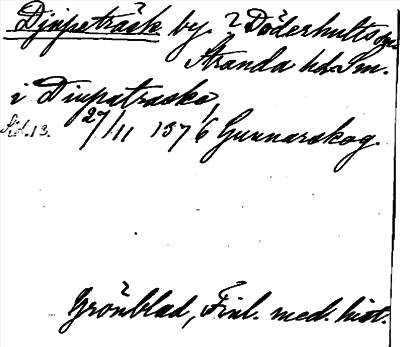 Djupeträsk by. i Döderhults sn.
Stranda hd. Sm.
i Diupatraske,
Sid. 13. 27/11 1376 Gunnarskog.
Grönblad, Finl. med. hist.